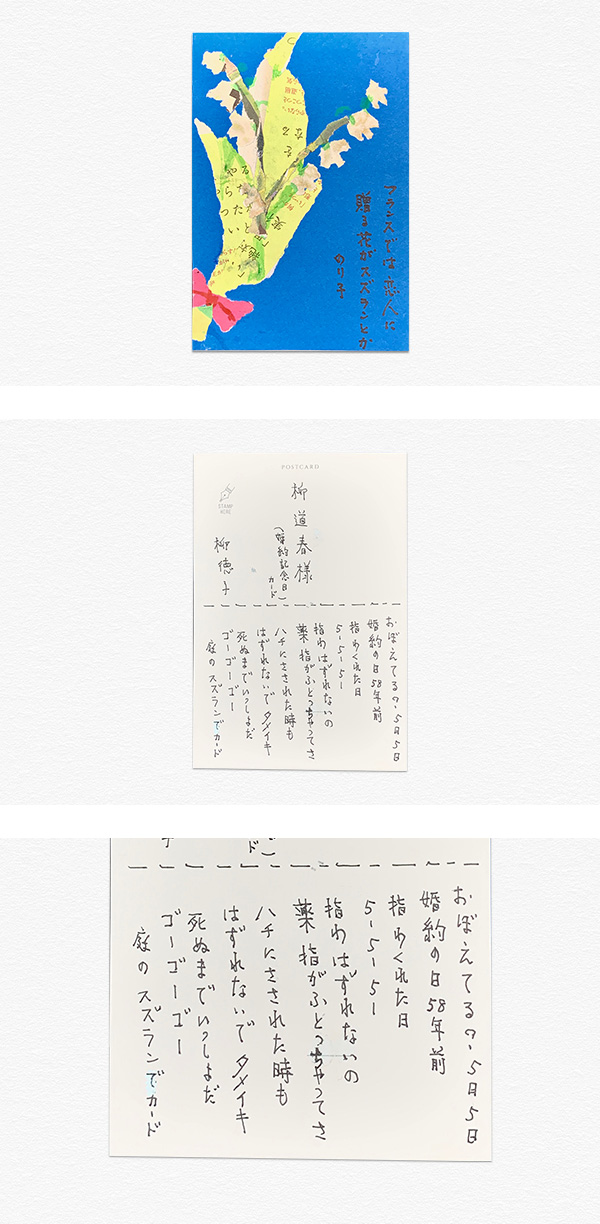 フランスでは恋人に
贈る花がスズランとか
のり子
POSTCARD
STAMP
HERE
柳道春様
(婚約記念日)
カード
柳徳子
おぼえてるの、5日5日
婚約の日58年前
指わくれた日
5-5-5-
指わはずれないの
薬指がふとっちゃってさ
ハチにさされた時も
はずれないでタメイキ
死ぬまでいっしょだ
ゴーゴーゴー
庭のスズランでカード
ド
おぼえてるの、5日5日
婚約の日58年前
指わくれた日
5-5-5-
指わはずれないの
薬指がふとっちゃってさ
ハチにさされた時も
はずれないでタメイキ
死ぬまでいっしょだ
ゴーゴーゴー
庭のスズランでカード